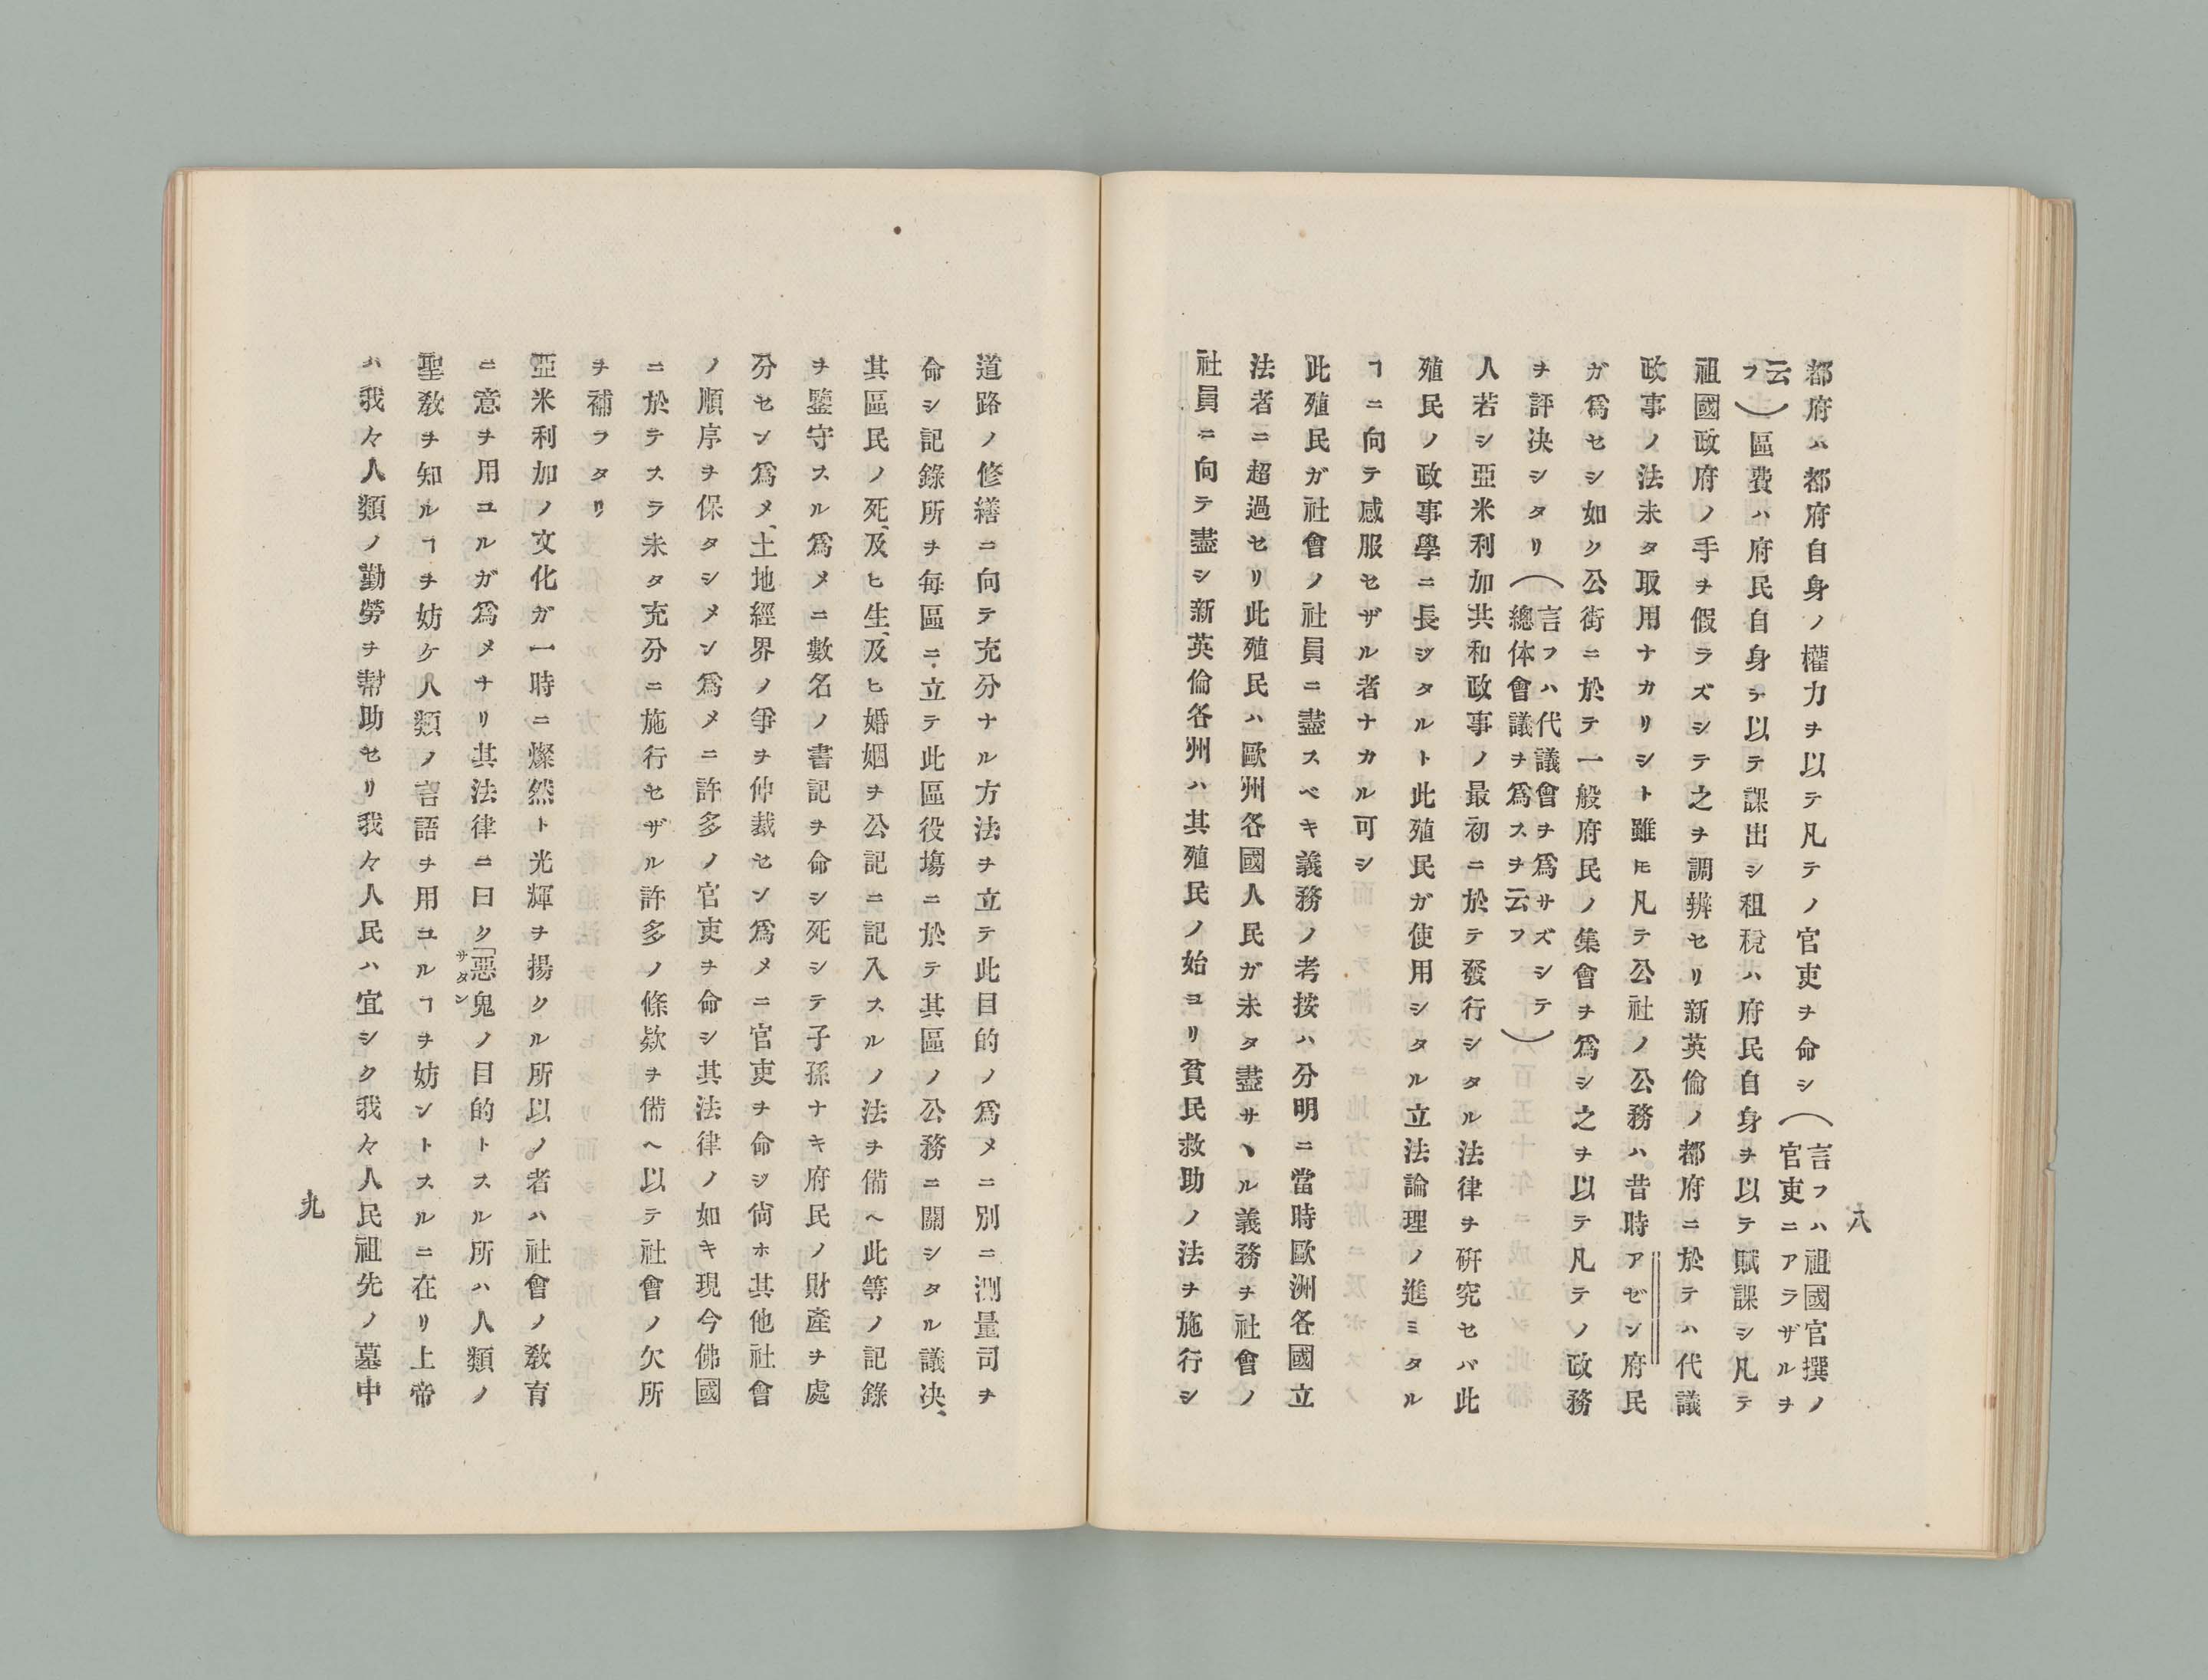 八
都府ハ都府自身ノ權力ヲ以テ凡テノ官吏ヲ命シ（言フハ祖國官撰ノ官吏ニアラザルヲ
云フ）區費ハ府民自身ヲ以テ課出シ租稅ハ府民自身ヲ以テ賦課シ凡テ
祖國政府ノ手ヲ假ラズシテ之ヲ調辨セリ新英倫ノ都府ニ於テハ代議
政事ノ法未タ取用ナカリシト雖𪜈凡テ公社ノ公務ハ昔時アゼン府民
ガ爲セシ如ク公街ニ於テ一般府民ノ集會ヲ爲シ之ヲ以テ凡テノ政務
ヲ評决シタリ（言フハ代議會ヲ爲サズシテ總体會議ヲ爲スヲ云フ）
人若シ亞米利加共和政事ノ最初ニ於テ發行シタル法律ヲ硏究セバ此
殖民ノ政事學ニ長ジタルト此殖民ガ使用シタル立法論理ノ進ミタル
ヿニ向テ感服セザル者ナカル可シ
此殖民ガ社會ノ社員ニ盡スベキ義務ノ考按ハ分明ニ當時歐洲各國立
法者ニ超過セリ此殖民ハ歐州各國人民ガ未タ盡サヽル義務ヲ社會ノ
社員ニ向テ盡シ新英倫各州ハ其殖民ノ始ヨリ貧民救助ノ法ヲ施行シ
道路ノ修繕ニ向テ充分ナル方法ヲ立テ此目的ノ爲メニ別ニ測量司ヲ
命シ記錄所ヲ每區ニ立テ此區役塲ニ於テ其區ノ公務ニ關シタル議决、
其區民ノ死、及ヒ生、及ヒ婚姻ヲ公記ニ記入スルノ法ヲ備ヘ此等ノ記錄
ヲ鑒守スル爲メニ數名ノ書記ヲ命シ死シテ子孫ナキ府民ノ財產ヲ處
分セン爲メ、土地經界ノ爭ヲ仲裁セン爲メニ官吏ヲ命ジ尙ホ其他社會
ノ順序ヲ保タシメン爲メニ許多ノ官吏ヲ命シ其法律ノ如キ現今佛國
ニ於テスラ未タ充分ニ施行セザル許多ノ條欵ヲ備ヘ以テ社會ノ欠所
ヲ補フタリ
亞米利加ノ文化ガ一時ニ燦然ト光輝ヲ揚クル所以ノ者ハ社會ノ敎育
ニ意ヲ用ユルガ爲メナリ其法律ニ曰ク「惡鬼サタンノ目的トスル所ハ人類ノ
聖敎ヲ知ルヿヲ妨ケ人類ノ言語ヲ用ユルヿヲ妨ントスルニ在リ上帝
ハ我々人類ノ勤勞ヲ幇助セリ我々人民ハ宜シク我々人民祖先ノ墓中
九